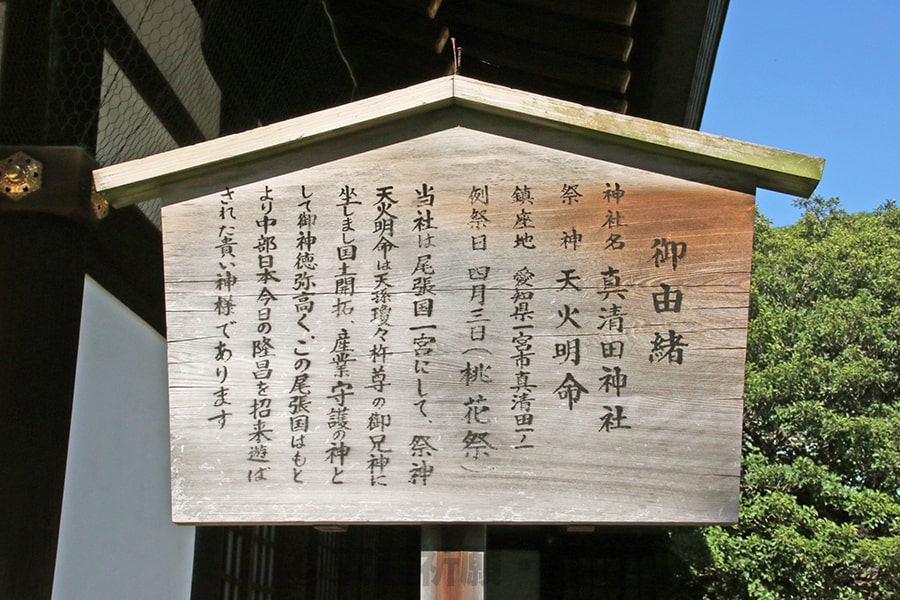 御由緒
神社名 真清田神社
祭神 天火明命
鎮座地 愛知県一宮市真清田一ノ一
例祭日 四月三日(桃花祭)
当社は尾張国一宮にして、祭神
天火明命は天孫瓊々杵尊の御兄神に
坐しまし国土開拓、産業守護の神と
して御神徳弥高く、この尾張国はもと
より中部日本今日の隆昌を招来遊ば
された貴い神様であります
祈願